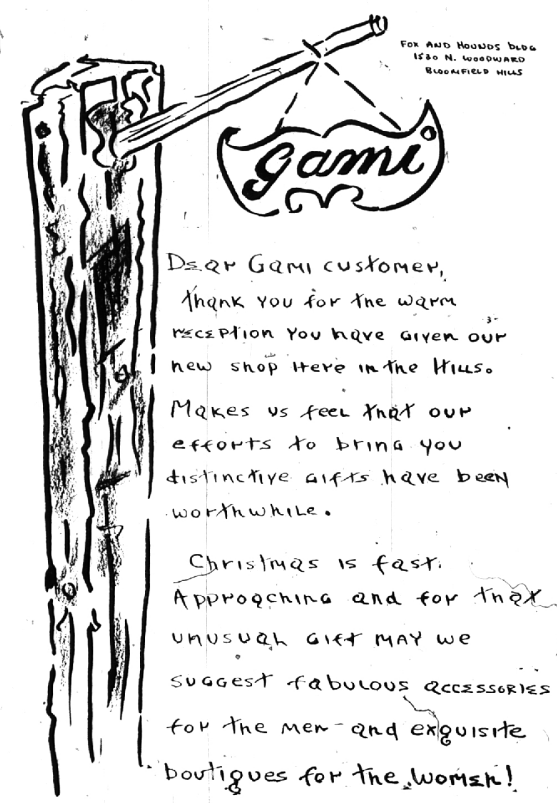 FOX AND HOUNDS BLDG
1580 N. WOODWARD
BLOOMFIELD HILLS
gami
Dear Gami customer,
thank you for the warm
reception you have given our
new shop here in the Hills.
Makes us feel that our
efforts to bring you
distinctive gifts have been
worthwhile.
Christmas is fast
Approaching and for that
unusual gift may we
suggest fabulous accessories
for the men - and exquisite
boutiques for the women!